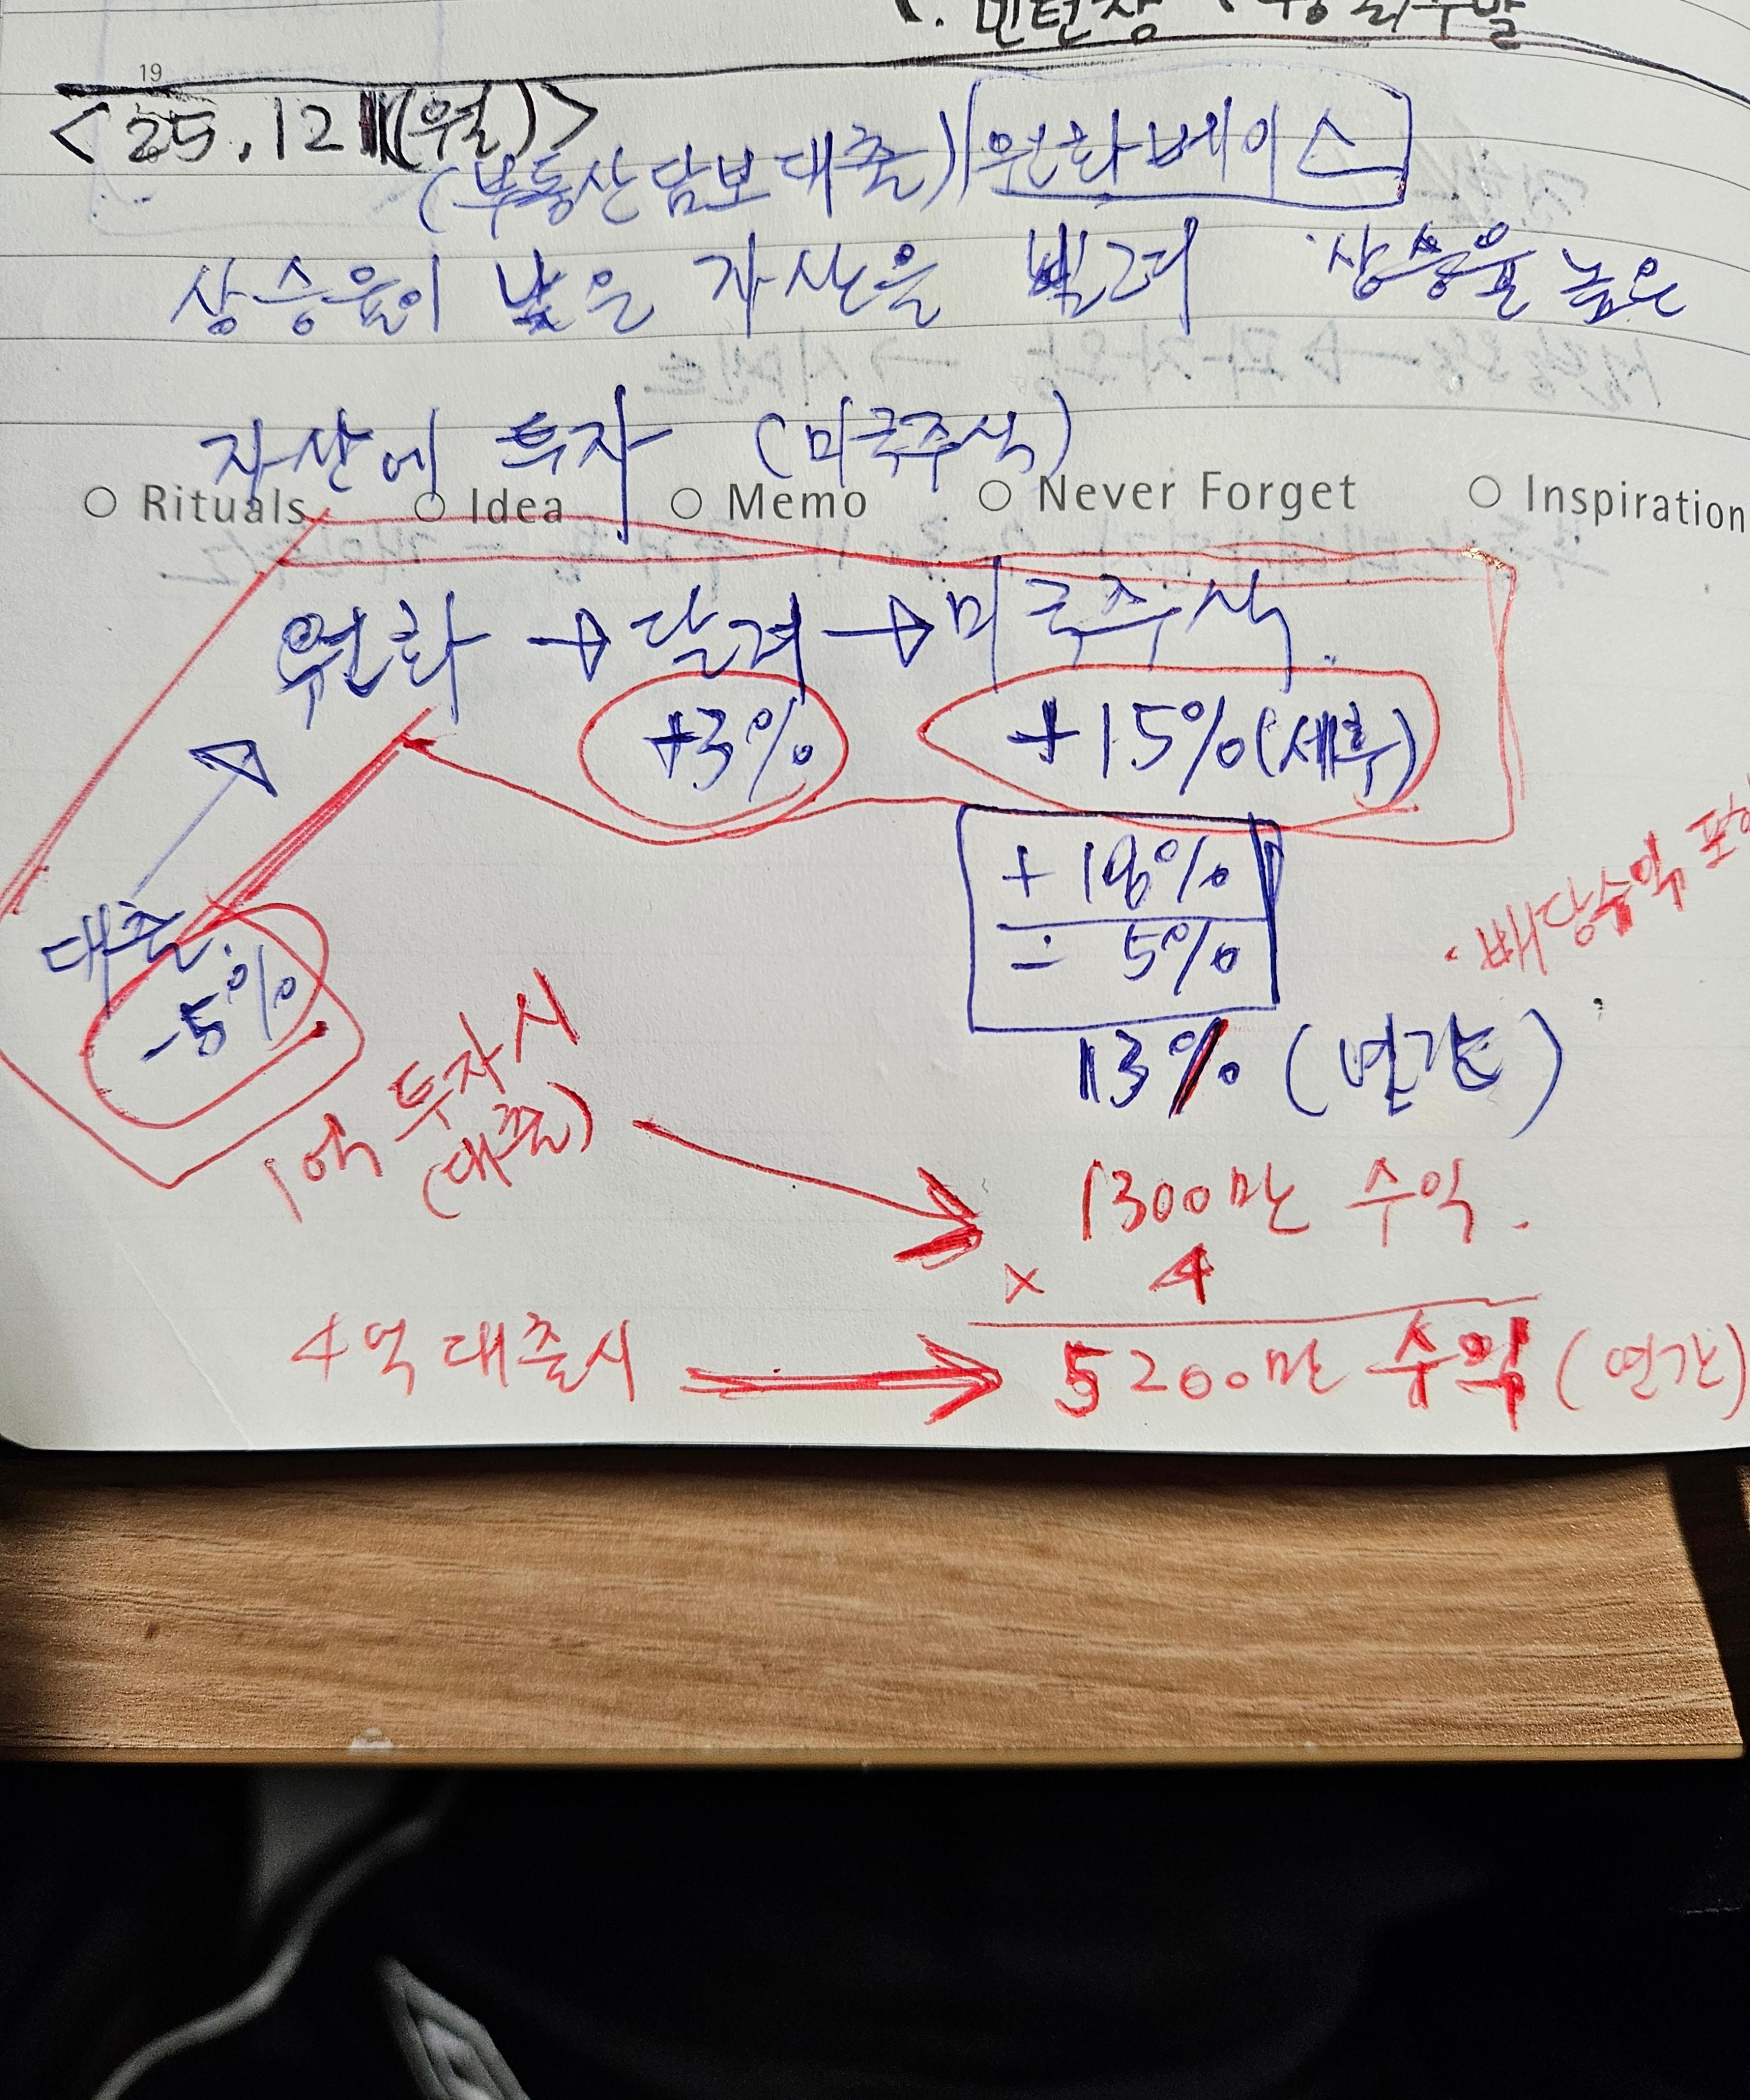 19
<25.12 (월)>
(부동산담보대출) 원화베이스
상승율이 낮은 자산을 빌려 상승율 높은
자산에 투자 (미국주식)
Rituals Idea Memo Never Forget Inspiration
원화 → 달러 → 미국주식
+3% +15%(세후)
+18%
- 5%
· 배당수익 포함
대출.
-5%
13% (연간)
1억 투자시
(대출)
1300만 수익.
× 4
4억 대출시 → 5200만 수익 (연간)